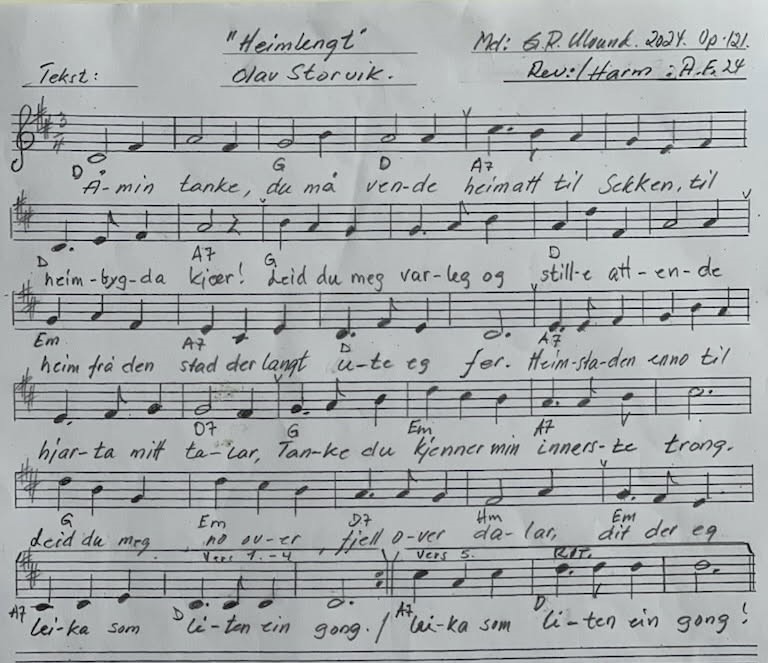 "Heimlengt"
Md: G.R. Ulvund. 2024. Op. 121.
Tekst: Olav Storvik.
Rev:/Harm: A.F. 24
3/4
D G D A7
Å-min tanke, du må ven-de heimatt til Sekken, til
D A7 G D
heim-byg-da kjær! Leid du meg var-leg og still-e att-en-de
Em A7 D A7
heim frå den stad der langt u-te eg fer. Heim-sta-den enno til
D7 G Em A7
hjar-ta mitt ta-lar, Tan-ke du kjenner min inners-te trong.
G Em D7 Hm Em
Leid du meg no ov-er fjell o-ver da-lar, dit der eg
Vers 1.-4 Vers 5. RIT.
A7 D A7 D
lei-ka som li-ten ein gong. / lei-ka som li-ten ein gong!